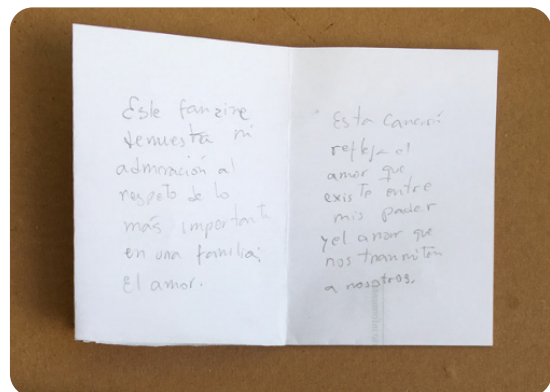 Este fanzine
demuestra mi
admiración al
respeto de lo
más importante
en una familia;
El amor.
Esta canción
refleja el
amor que
existe entre
mis pader
y el amor que
nos transmiten
a nosotros.